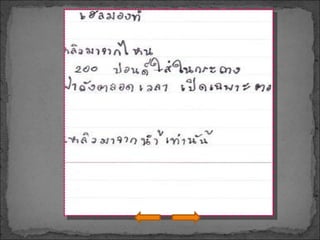 เฮลมองท์
หลิวมาจากไหน
200 ปอนด์ ใส่ในกระถาง
ฝาถังตลอดเวลา เปิดเฉพาะตอ
หลิวมาจากน้ำเท่านั้น